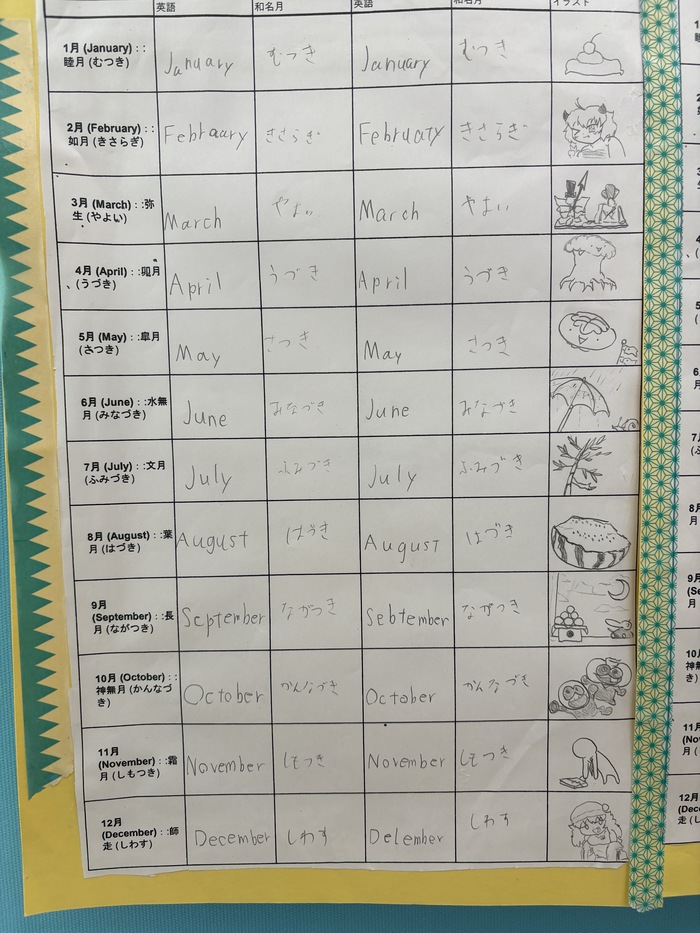 英語 和名月 英語 和名月 イラスト
1月 (January) : :
睦月 (むつき)
January むつき January むつき
2月 (February) : :
如月 (きさらぎ)
Febraary きさらぎ February きさらぎ
3月 (March) : :弥
生 (やよい)
March やよい March やよい
4月 (April) : :卯月
、(うづき)
April うづき April うづき
5月 (May) : :皐月
(さつき)
May さつき May さつき
6月 (June) : :水無
月 (みなづき)
June みなづき June みなづき
7月 (July) : :文月
(ふみづき)
July ふみづき July ふみづき
8月 (August) : :葉
月 (はづき)
August はづき August はづき
9月
(September) : :長
月 (ながつき)
September ながつき Sebtember ながつき
10月 (October) : :
神無月 (かんなづ
き)
October かんなづき October かんなづき
11月
(November) : :霜
月 (しもつき)
November しもつき November しもつき
12月
(December) : :師
走 (しわす)
December しわす Delember しわす